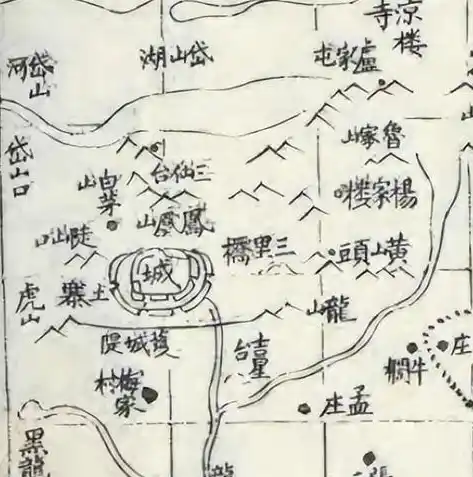 涼楼寺
盧家屯
岱山湖
岱山河
魯家山
岱山口
三仙台
白芽山
楊家楼
鳳凰山
陡山口
三里橋
黄山頭
城
土寨
虎山
龍山
護城堤
吉星台
梅家村
孟庄
牛棚
庄
黑龍
龍